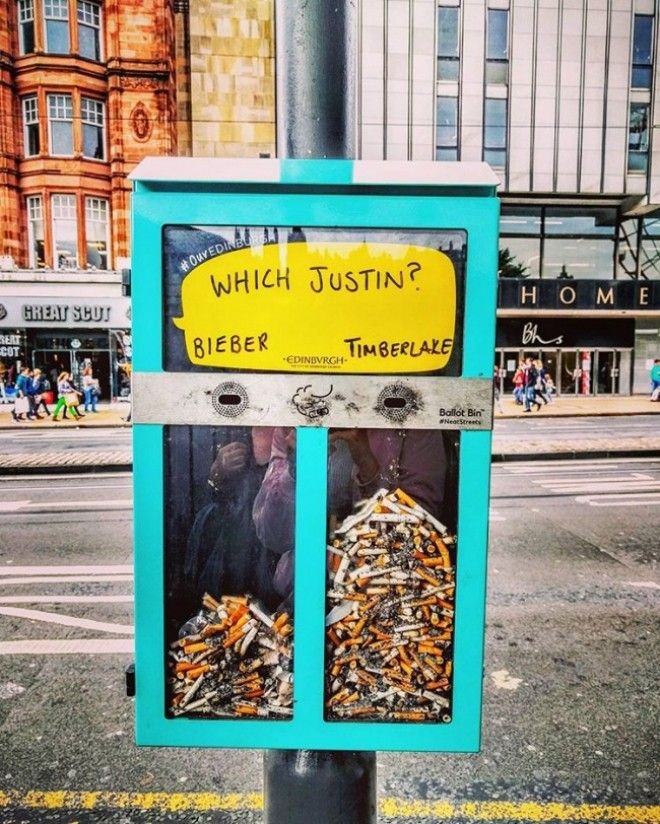 #OUREDINBURGH
WHICH JUSTIN?
BIEBER
TIMBERLAKE
·EDINBVRGH·
Ballot Bin™
#NeatStreets
GREAT SCOT
HOME
Bhs